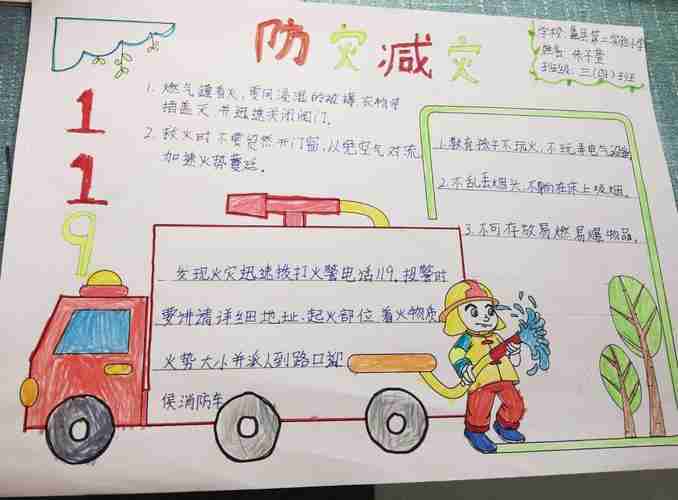 防灾减灾
学校:蠡县第二实验小学
姓名:朱子萱
班级:三(
)班
119
1. 燃气罐着火,要用浸湿的被褥、衣物等
捂盖灭,并迅速关闭阀门。
2. 救火时不要贸然开门窗,以免空气对流,
加速火势蔓延。
1.教育孩子不玩火,不玩弄电气设备。
2.不乱丢烟头,不躺在床上吸烟。
3.不可存放易燃易爆物品。
发现火灾迅速拨打火警电话119.报警时
要讲清详细地址、起火部位、着火物质、
火势大小并派人到路口
候消防车